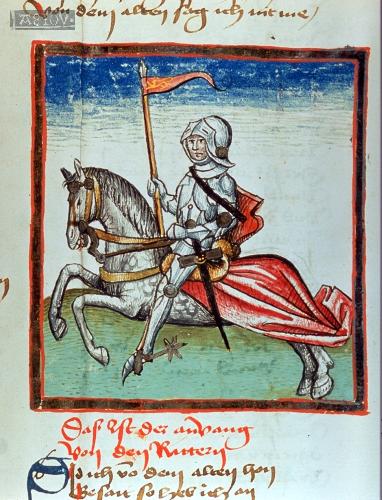 Von dem alten sag ich nit me
Das Ist der anvang
Von den Rittern
Sid ich vo dem alten hon
so heb ich an